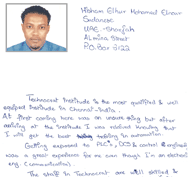 Hisham Elhur Mohamed Elnour
Sudanese
UAE - Sharjah
Almina Street
P.O.Box 3122
Technocrat Institute is the most qualified & well
equiped Institute in Chennai-India.
At first coming here was an unsure thing but after
arriving at the Institute I was realized knowing that
I will get the best training in automation.
Getting exposed to PLC's, DCS & control & engineering
was a great experience for me even though I'm an electroni
eng. (Communication).
The staff in Technocrat are well skilled &